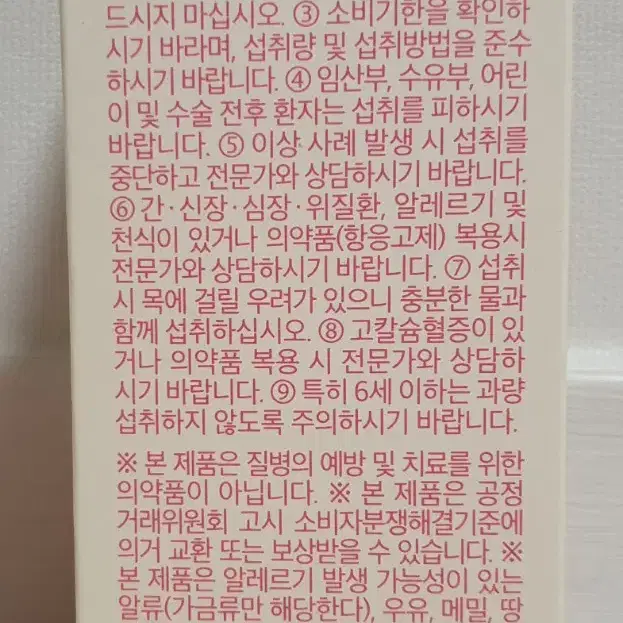 드시지 마십시오. ③ 소비기한을 확인하
시기 바라며, 섭취량 및 섭취방법을 준수
하시기 바랍니다. ④ 임산부, 수유부, 어린
이 및 수술 전후 환자는 섭취를 피하시기
바랍니다. ⑤ 이상 사례 발생 시 섭취를
중단하고 전문가와 상담하시기 바랍니다.
⑥ 간·신장·심장·위질환, 알레르기 및
천식이 있거나 의약품(항응고제) 복용시
전문가와 상담하시기 바랍니다. ⑦ 섭취
시 목에 걸릴 우려가 있으니 충분한 물과
함께 섭취하십시오. ⑧ 고칼슘혈증이 있
거나 의약품 복용 시 전문가와 상담하
시기 바랍니다. ⑨ 특히 6세 이하는 과량
섭취하지 않도록 주의하시기 바랍니다.
※ 본 제품은 질병의 예방 및 치료를 위한
의약품이 아닙니다. ※ 본 제품은 공정
거래위원회 고시 소비자분쟁해결기준에
의거 교환 또는 보상받을 수 있습니다. ※
본 제품은 알레르기 발생 가능성이 있는
알류(가금류만 해당한다), 우유, 메밀, 땅